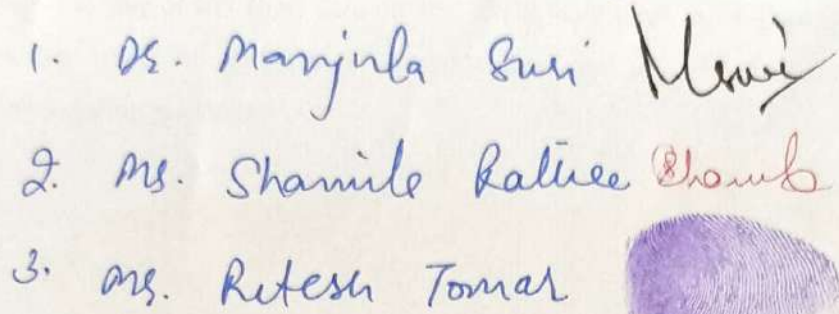 1. Dr. Manjula Suri
2. Ms. Shamile Rathee
3. Ms. Ritesh Tomar